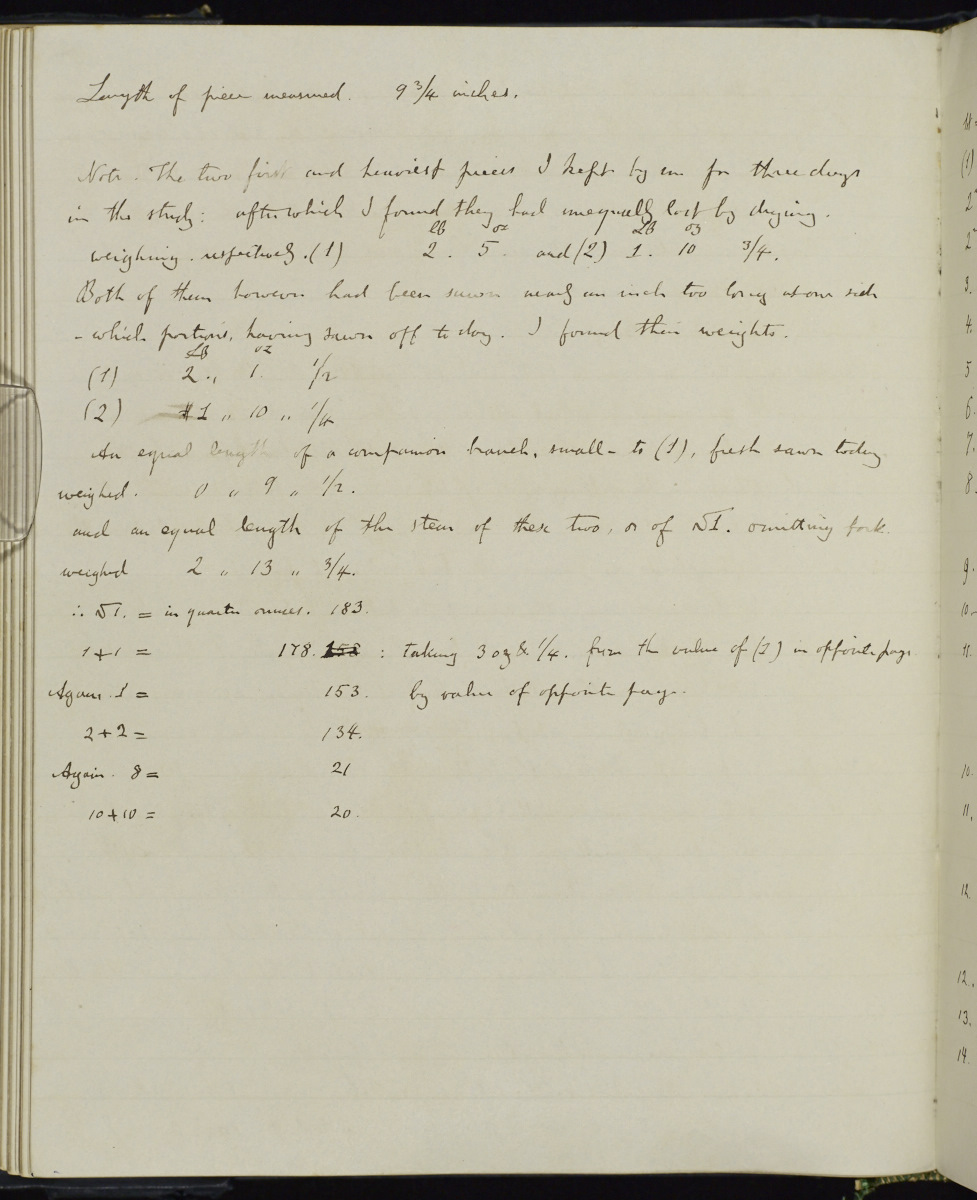 Length of piece measured. 9 3/4 inches.
Note. The two first and heaviest pieces I kept by me for three days
in the study: after which I found they had unequally lost by drying.
LB oz LB oz
weighing. respectively. (1) 2. 5. and (2) 1. 10 3/4.
Both of them however had been sawn nearly an inch too long at one side
- which portions, having sawn off to day. I found their weights.
LB oz
(1) 2 „ 1. 1/2
(2) 1 „ 10 „ 1/4
An equal length of a companion branch, smaller to (1), fresh sawn today
weighed. 0 „ 9 „ 1/2.
and an equal length of the stem of these two, or of ST. omitting fork.
weighed 2 „ 13 „ 3/4.
∴ ST. = in quarter ounces. 183.
1+1 = 178. 158 : taking 3 oz & 1/4. from the value of (1) in opposite page.
Again. 1 = 153. by value of opposite page.
2+2 = 134.
Again. 8 = 21
10+10 = 20.
(1)
2
2
3.
4.
5
6.
7.
8.
9.
10.
11.
10.
11.
12.
12.
13.
14.